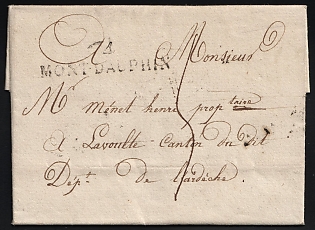 4
MONT-DAUPHIN
Monsieur
Mr Ménet henri propriétaire
A Lavoulte Canton du dit
Dépt. de l'ardèche.